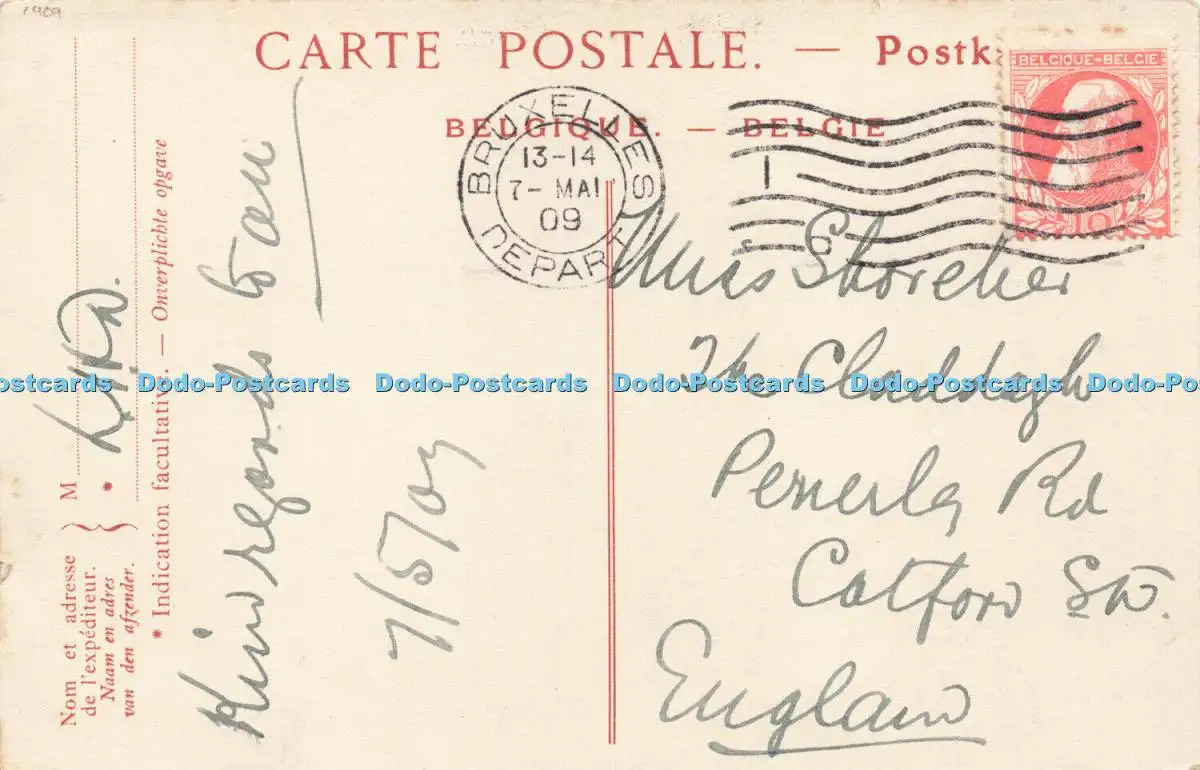 1909
CARTE POSTALE. — Postk
BELGIQUE. — BELGIE
BELGIQUE-BELGIE
10
BRUXELLES
13-14
7- MAI
09
DEPART
1
Miss
The Claddagh
Penerley Rd
Catford
England
Kind regards to all
7/5/09
Nom et adresse
de l'expéditeur.
Naam en adres
van den afzender.
M
*
* Indication facultative. — Onverplichte opgave
ostcards Dodo-Postcards Dodo-Postcards Dodo-Postcards Dodo-Postcards Dodo-Post